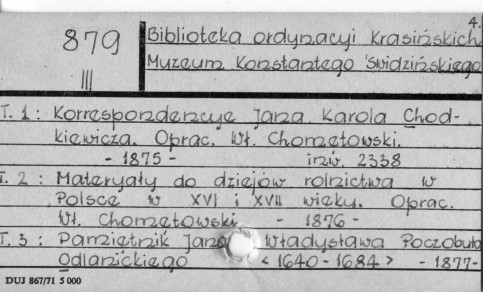 4.
879 Biblioteka ordynacyi Krasińskich
III Muzeum Konstantego Świdzińskiego
T. 1 : Korrespondencye Jana Karola Chod-
kiewicza. Oprac. Wł. Chomętowski.
- 1875 - inw. 2338
T. 2 : Materyały do dziejów rolnictwa w
Polsce w XVI i XVII wieku. Oprac.
Wł. Chomętowski - 1876 -
T. 3 : Pamiętnik Jana Władysława Poczobuta
Odlanickiego <1640 - 1684> - 1877-
DUJ 867/71 5 000